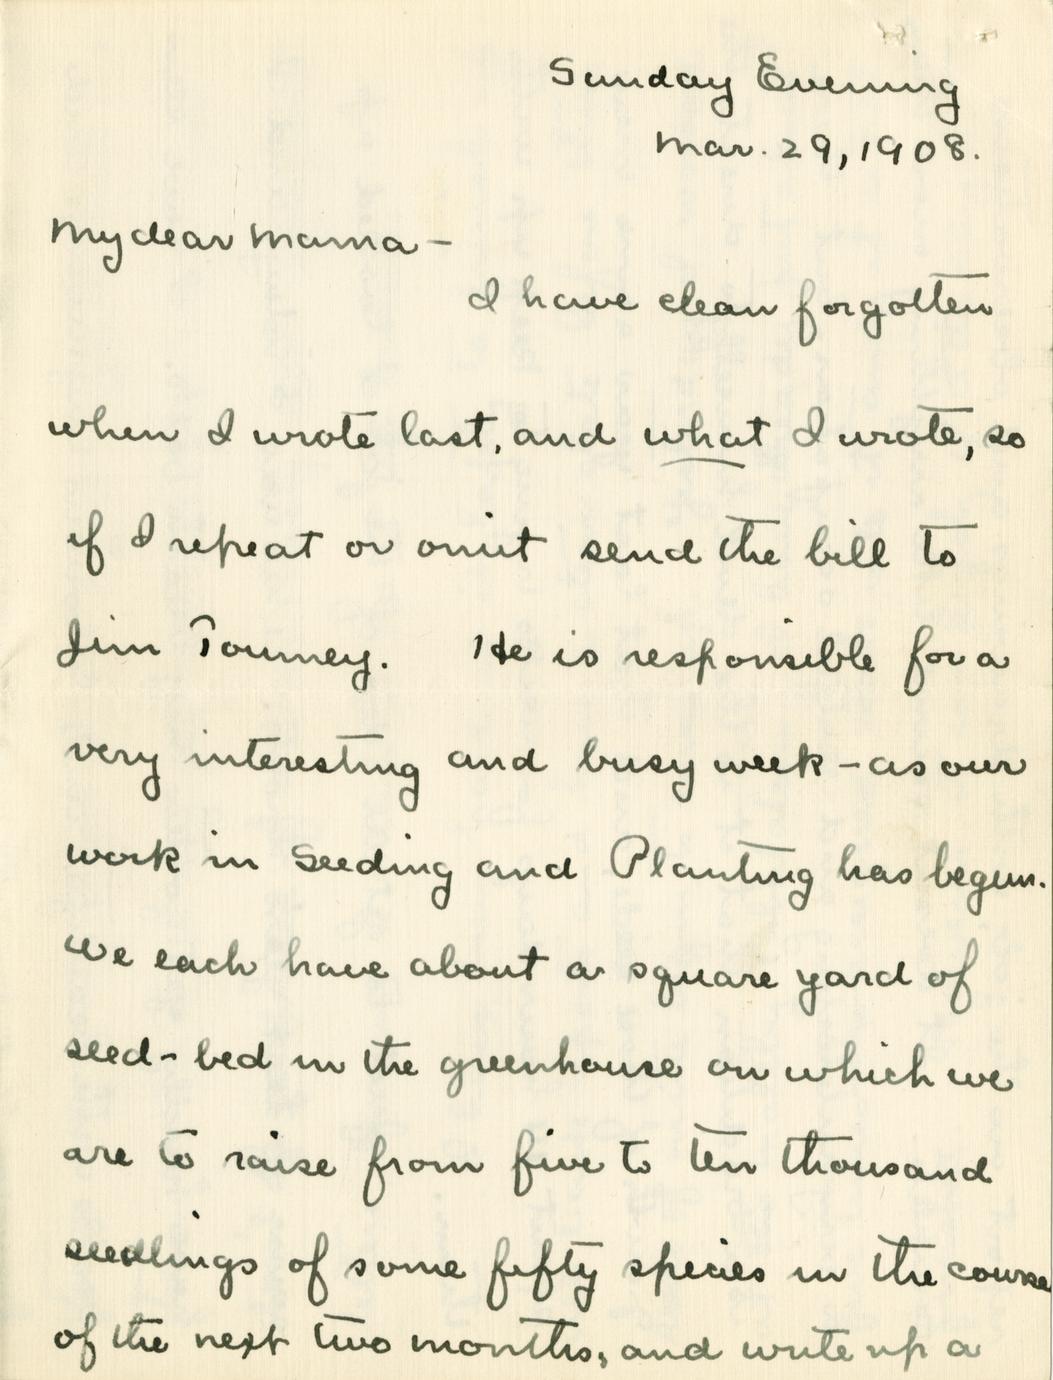 Sunday Evening
Mar. 29, 1908.
My dear Mama —
I have clean forgotten
when I wrote last, and what I wrote, so
if I repeat or omit send the bill to
Jim Toumey. He is responsible for a
very interesting and busy week – as our
work in Seeding and Planting has begun.
We each have about a square yard of
seed-bed in the greenhouse on which we
are to raise from five to ten thousand
seedlings of some fifty species in the course
of the next two months, and write up a